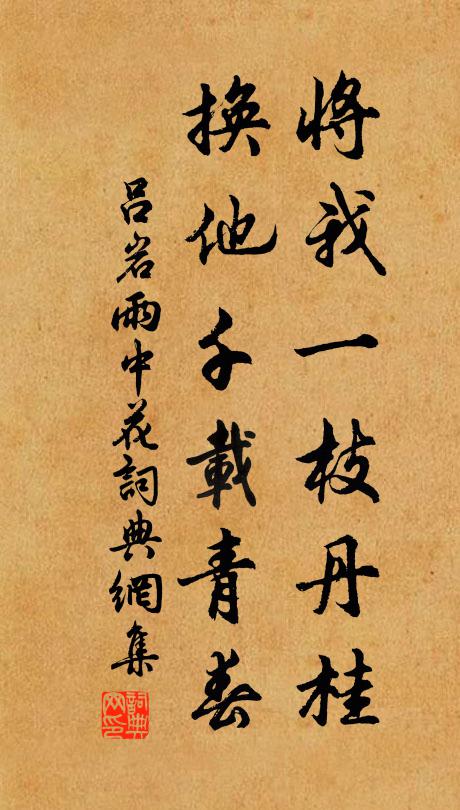 将我一枝丹桂
换他千載青春
吕岩雨中花詞典網集
詞典网印